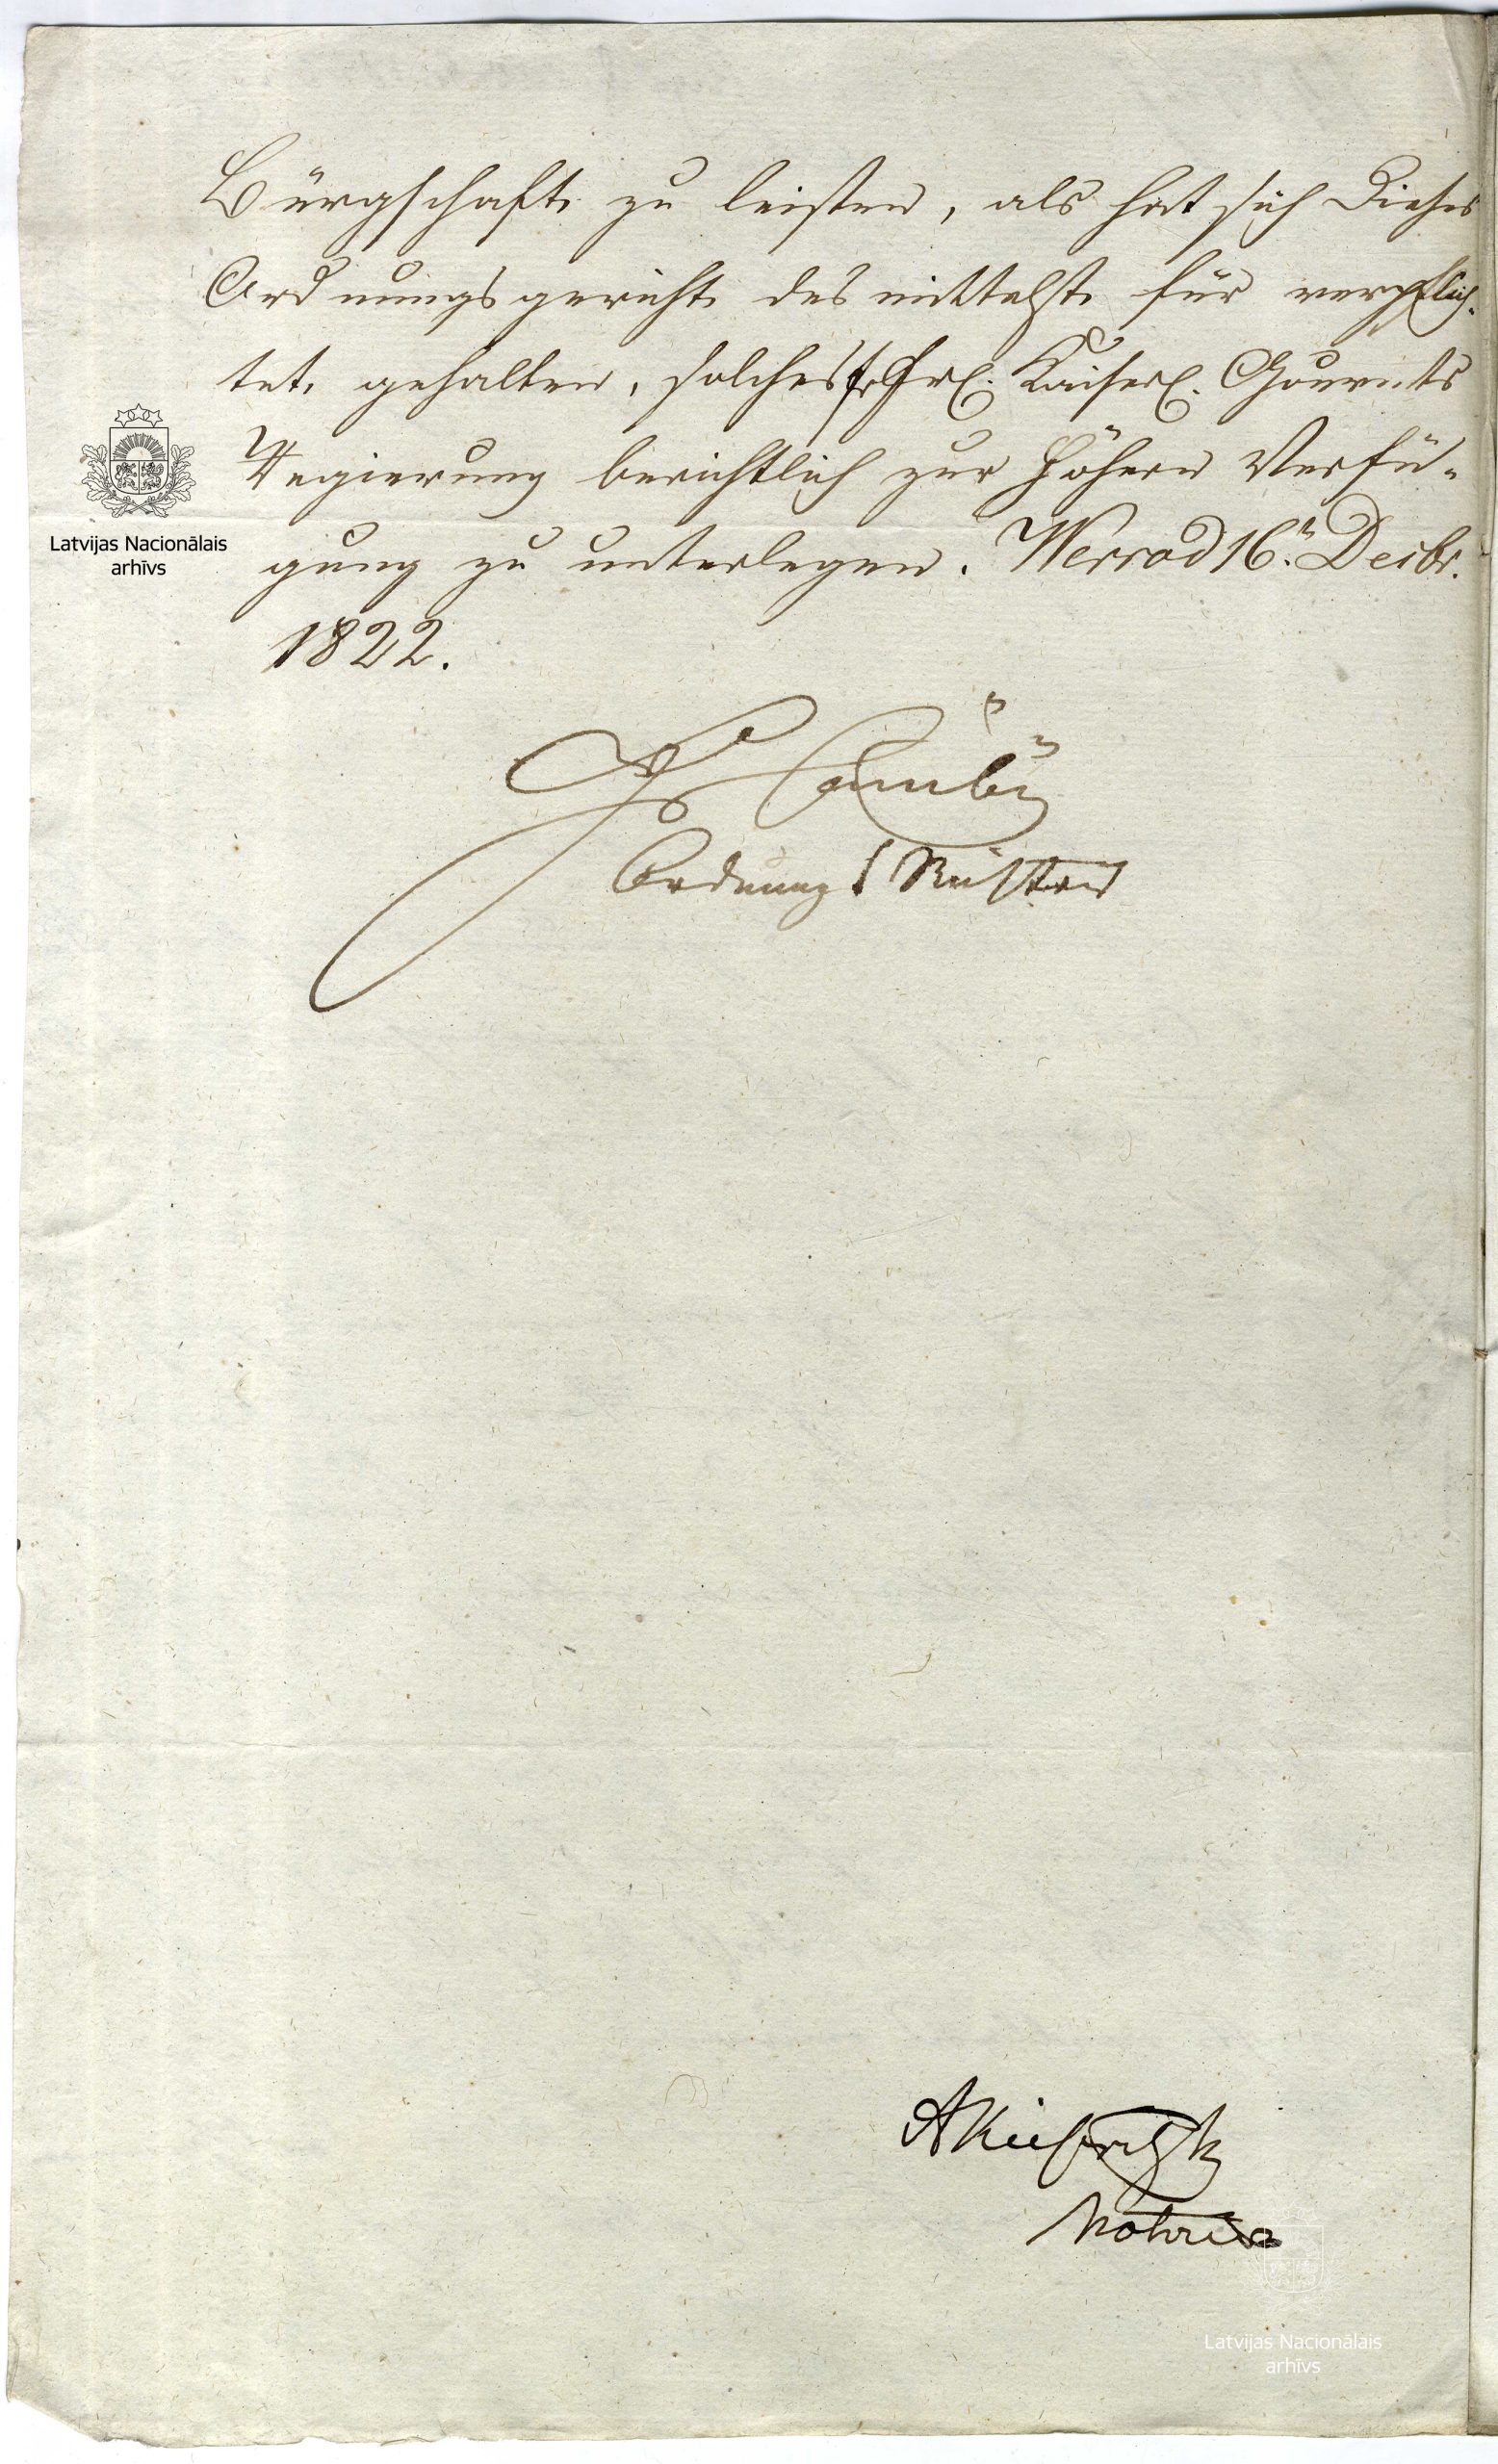 Bürgschaft zu leisten, als hat sich Dieses
Ordnungsgericht des mittelst für verpflich-
tet gehalten, solches Kaiserl. Gouvnts
Regierung berichtlich zur höhern Verfü-
gung zu unterlegen. Werro d 16n Decbr.
1822.
Ordnungs Richter
Notaire
Latvijas Nacionālais
arhīvs
Latvijas Nacionālais
arhīvs